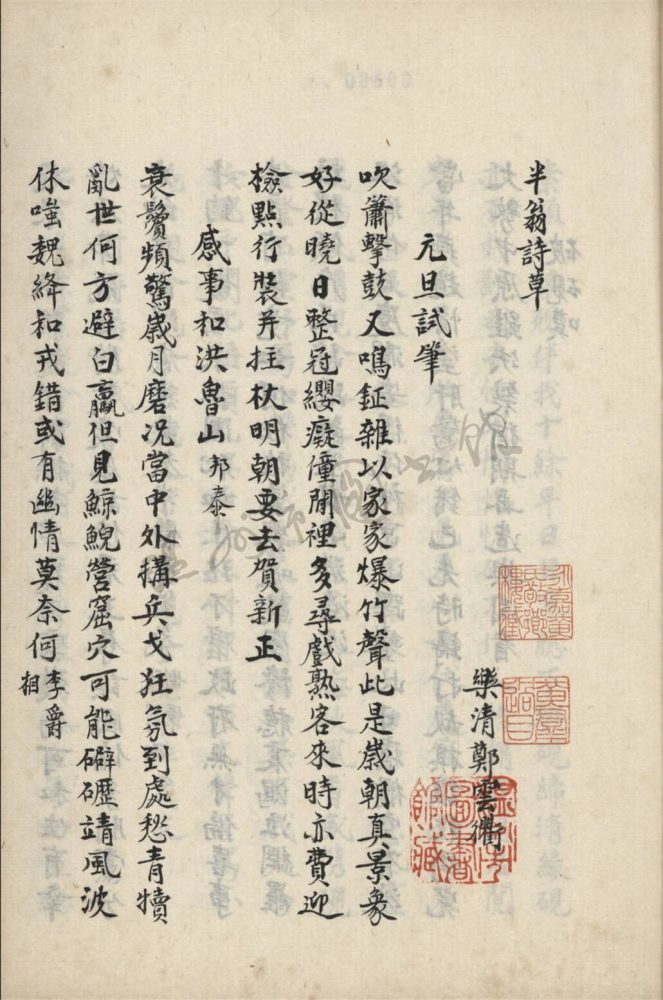 半翁詩草
樂清鄭雲衢
元旦試筆
吹簫擊鼓又鳴鉦雜以家家爆竹聲此是歲朝真景象
好從曉日整冠纓癡僮閒裡多尋戲熟客來時亦費迎
檢點行裝并拄杖明朝要去賀新正
感事和洪魯山邦泰
衰鬢頻驚歲月磨况當中外搆兵戈狂氛到處愁青犢
亂世何方避白贏但見鯨鯢營窟穴可能礔礰靖風波
休嗤魏絳和戎錯或有幽情莫奈何李爵相